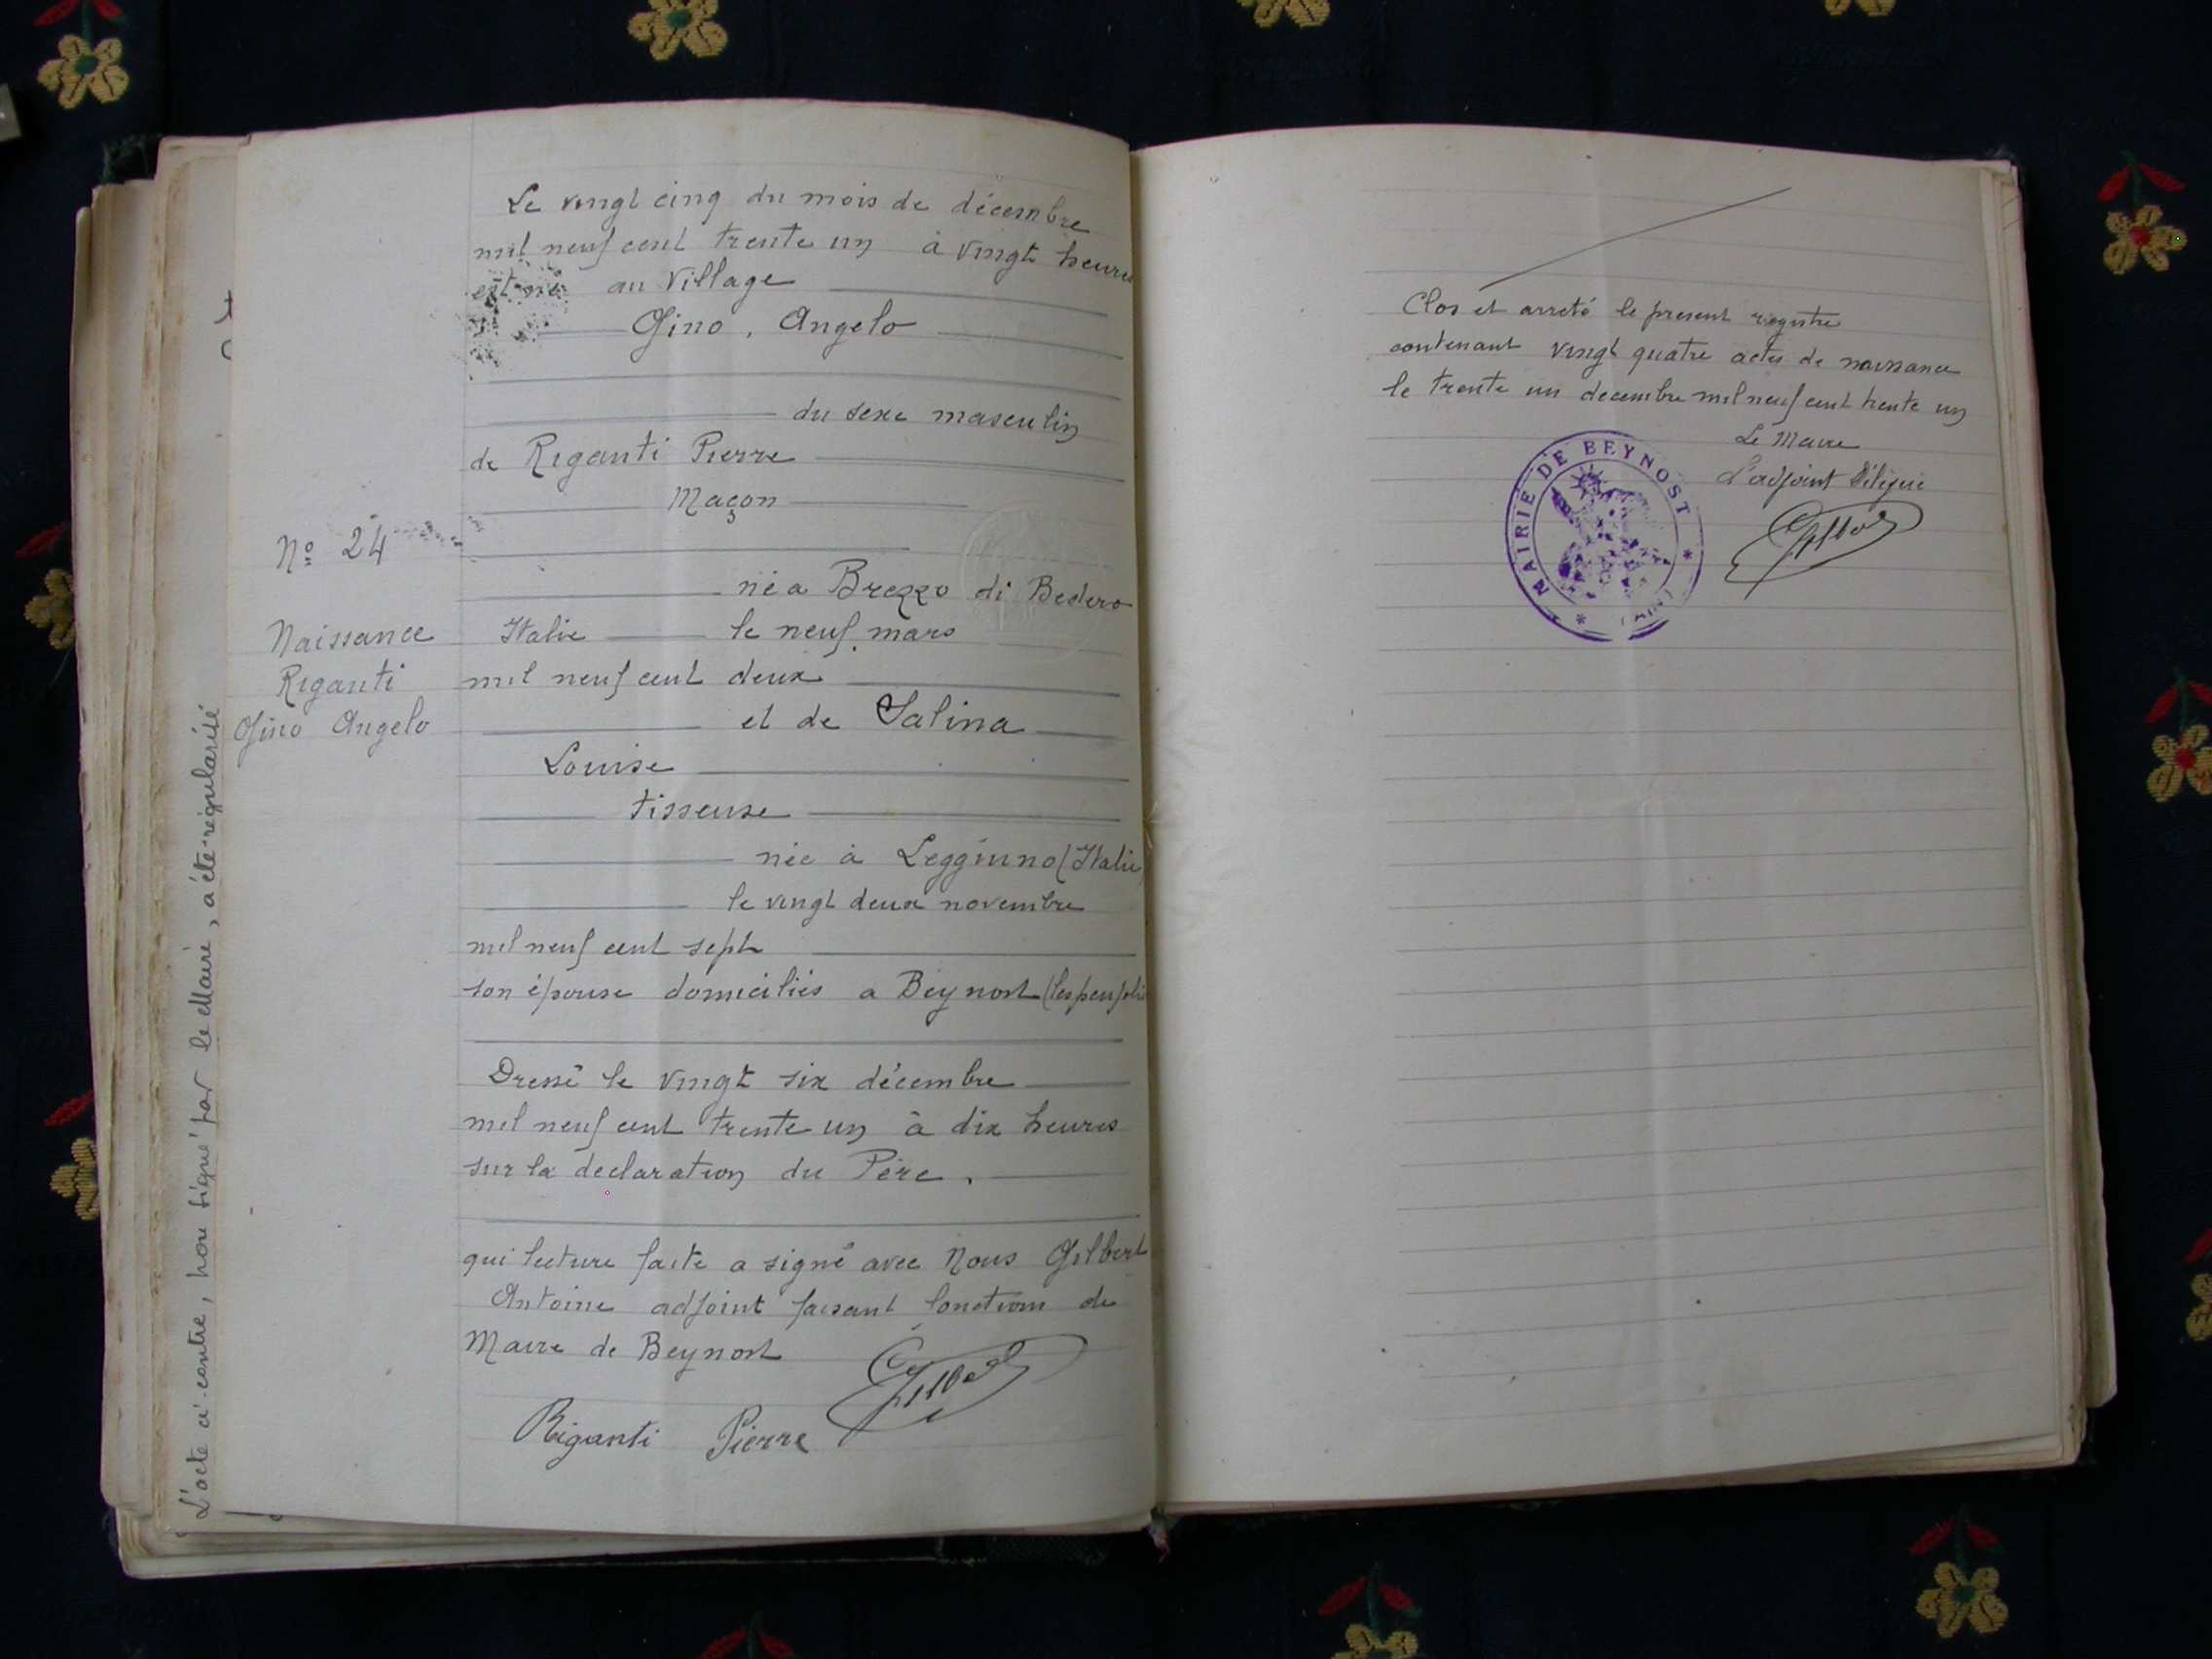 Le vingt cinq du mois de décembre
mil neuf cent trente un à vingt heures
est né au Village
Gino, Angelo
du sexe masculin
de Riganti Pierre
Maçon
né a Brezzo di Bedero
Italie le neuf mars
mil neuf cent deux
et de Salina
Louise
tisseuse
née à Leggiuno (Italie
le vingt deux novembre
mil neuf cent sept
son épouse domiciliés a Beynost
Dressé le vingt six décembre
mil neuf cent trente un à dix heures
sur la déclaration du Père.
qui lecture faite a signé avec Nous Gilbert
Antoine adjoint faisant fonction de
Maire de Beynost
Riganti Pierre
Nº 24
Naissance
Riganti
Gino Angelo
L'acte ci-contre, non signé par le Maire, a été régularisé
Clos et arreté le present registre
contenant vingt quatre actes de naissance
le trente un decembre mil neuf cent trente un
Le Maire
L'adjoint Délégué
MAIRIE DE BEYNOST
(AIN)